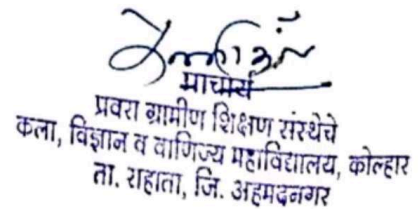 प्राचार्य
प्रवरा ग्रामीण शिक्षण संस्थेचे
कला, विज्ञान व वाणिज्य महाविद्यालय, कोल्हार
ता. राहाता, जि. अहमदनगर